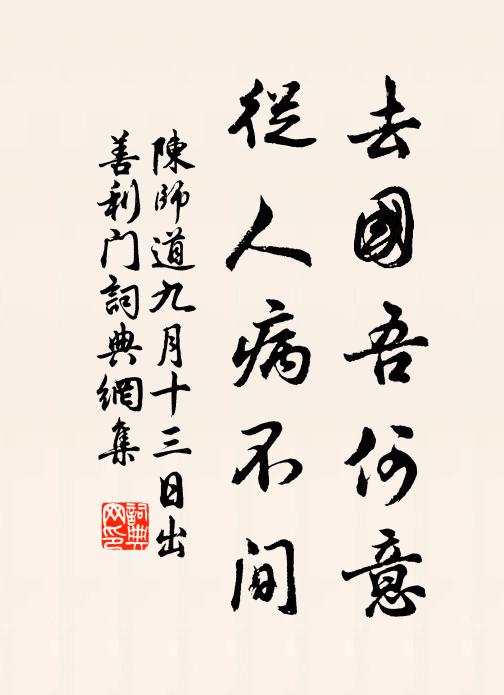 去國吾何意
從人病不间
陳師道九月十三日出
善利门詞典網集
詞典
网印